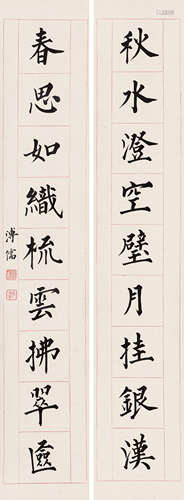 秋水澄空璧月挂銀漢
春思如織梳雲拂翠匳
溥儒